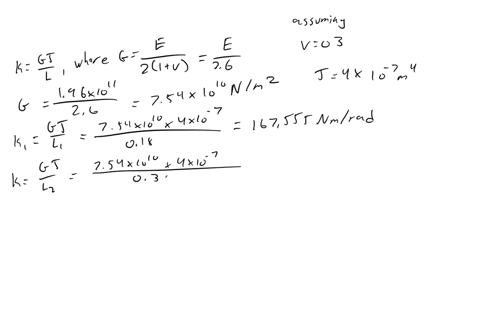 assuming
v=03
K=GJ/L, where G=E/2(1+v) = E/2.6
J=4×10^-7 m^4
G = 1.96×10^11/2.6 = 7.54×10^10 N/m^2
K_1 = GJ/L_1 = 7.54×10^10 × 4×10^-7/0.18 = 167,555 Nm/rad
K = GJ/L_2 = 7.54×10^10 × 4×10^-7/0.3.